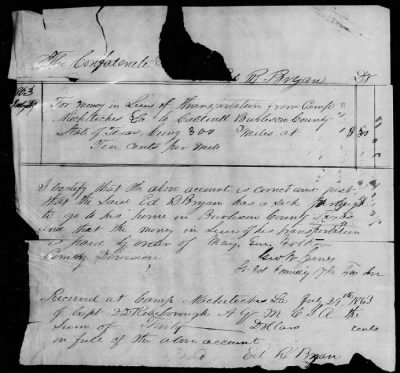 The Confederate
Ed R Bryan Dr
1863
July 29
For money in Lieu of transportation from Camp
Nachitoches La to Caldwell Burleson County
State of Texas being 300 Miles at $ 30
Ten Cents per Mile
I certify that the above account is correct and just
that the said Ed R Bryan has a Sick furlough
to go to his home in Burleson County Texas
and that the money in Lieu of his transportation
is paid by order of Maj Gen
Geo W
Received at Camp Nachitoches La July 29th 1863
of Capt A Q M C S A the
Sum of Thirty Dollars cents
in full of the above account
Ed R Bryan